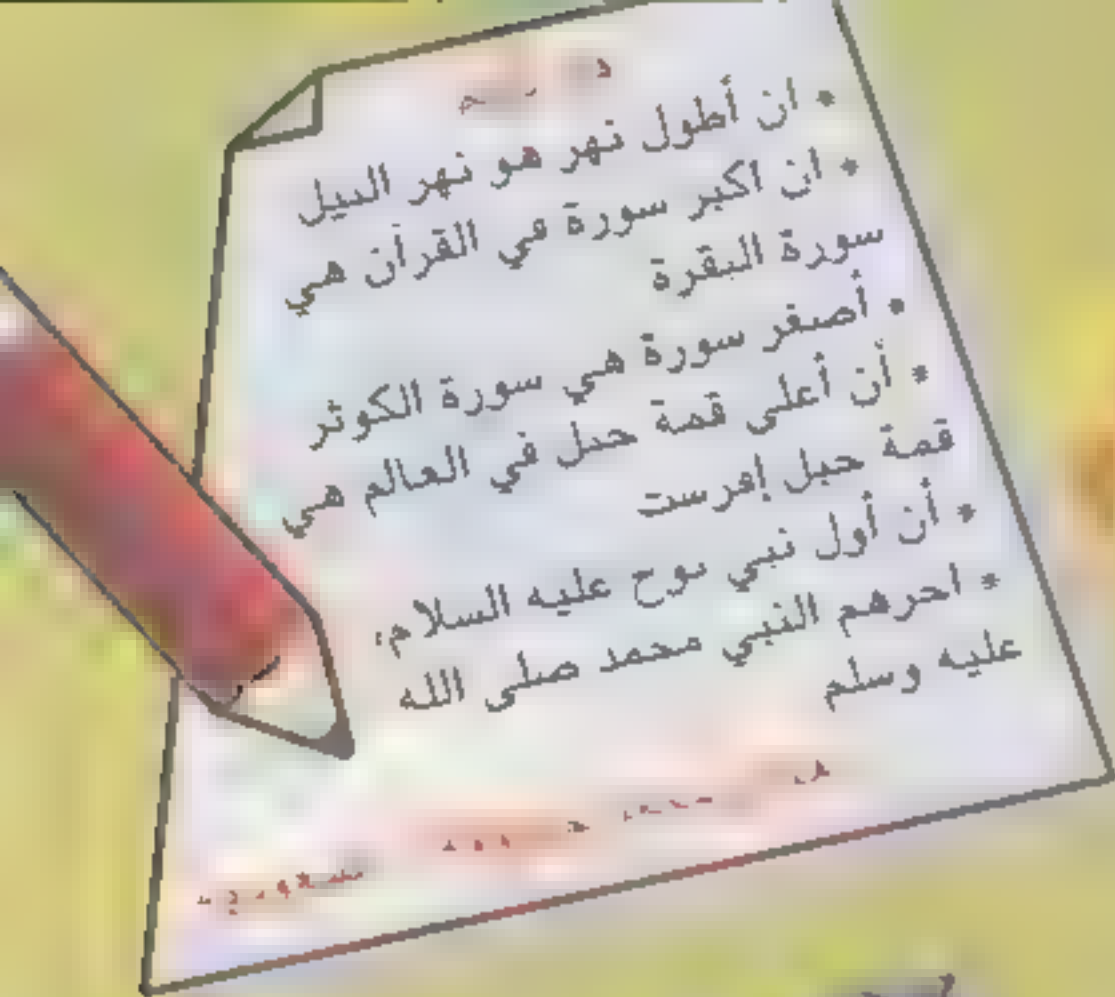 • ان أطول نهر هو نهر النيل
• ان اكبر سورة في القرآن هي
سورة البقرة
• أصغر سورة هي سورة الكوثر
* أن أعلى قمة جبل في العالم هي
قمة جبل إفرست
* أن أول نبي نوح عليه السلام،
* اخرهم النبي محمد صلى الله
عليه وسلم